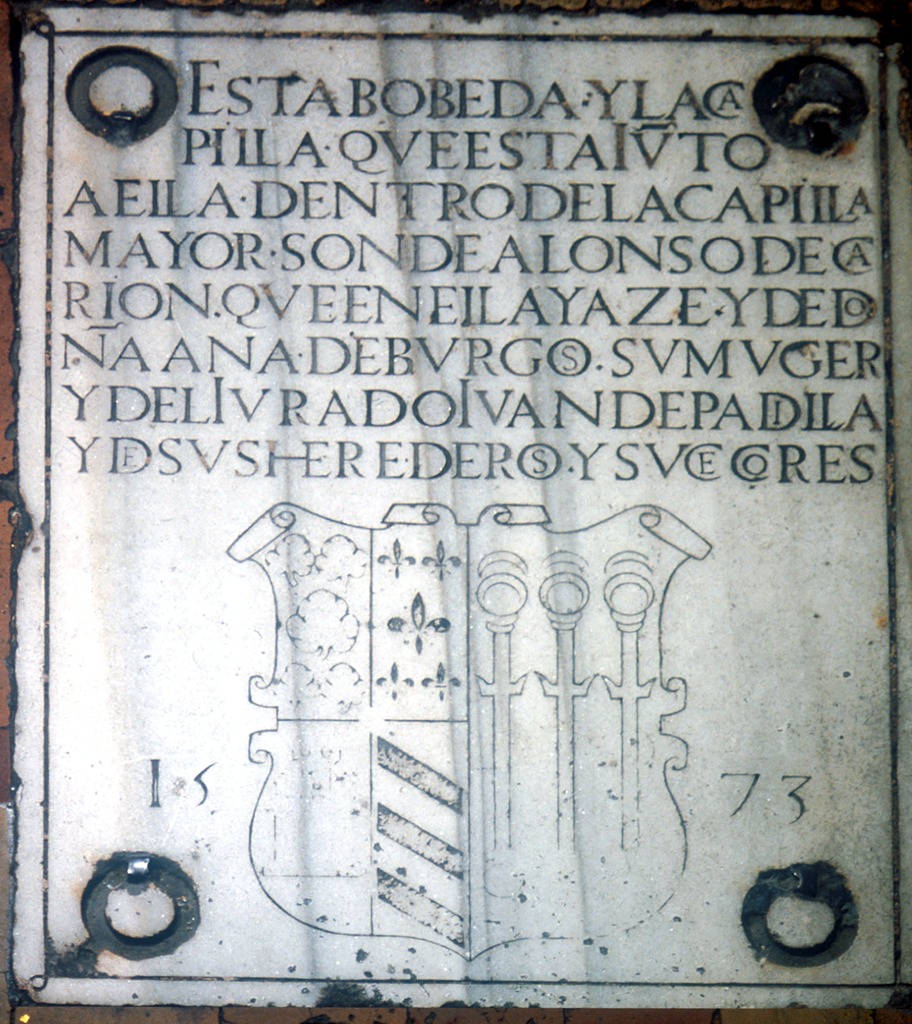 ESTABOBEDA·YLACA
PILLA·QVEESTAIṼTO
AELLA·DENTRODELACAPILLA
MAYOR·SONDEALONSODECA
RION·QVEENELLAYAZE·YDEDO
ÑAANA·DEBVRGOS·SVMUGER
YDELIVRADOIVANDEPADILLA
YDESVSHEREDEROS·YSVCECORES
15 73